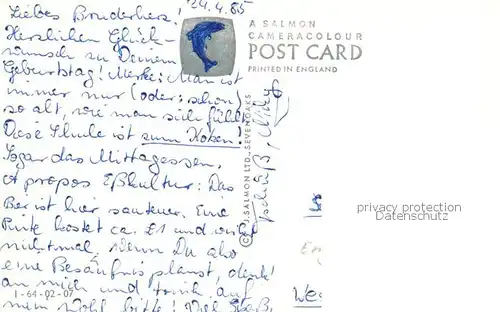 24.4.85
Liebes Bruderherz!
Herzlichen Glück-
wunsch zu Deinem
Geburtstag! Merke: Man ist
immer nur (oder: schon)
so alt, wie man sich fühlt.
Diese Schule ist zum Kotzen!
Sogar das Mittagessen.
A propos Eßkultur: Das
Bier ist hier sauteuer. Eine
Pinte kostet ca. £1 und wirkt
nichtmal. Wenn Du also
eine Besäufnis planst, denk'
an mich und trink' auf
mein Wohl, bitte! Viel Spaß,
Tschüß,
A SALMON
CAMERACOLOUR
POST CARD
PRINTED IN ENGLAND
© J. SALMON LTD., SEVENOAKS
1-64-02-07
privacy protection
Datenschutz